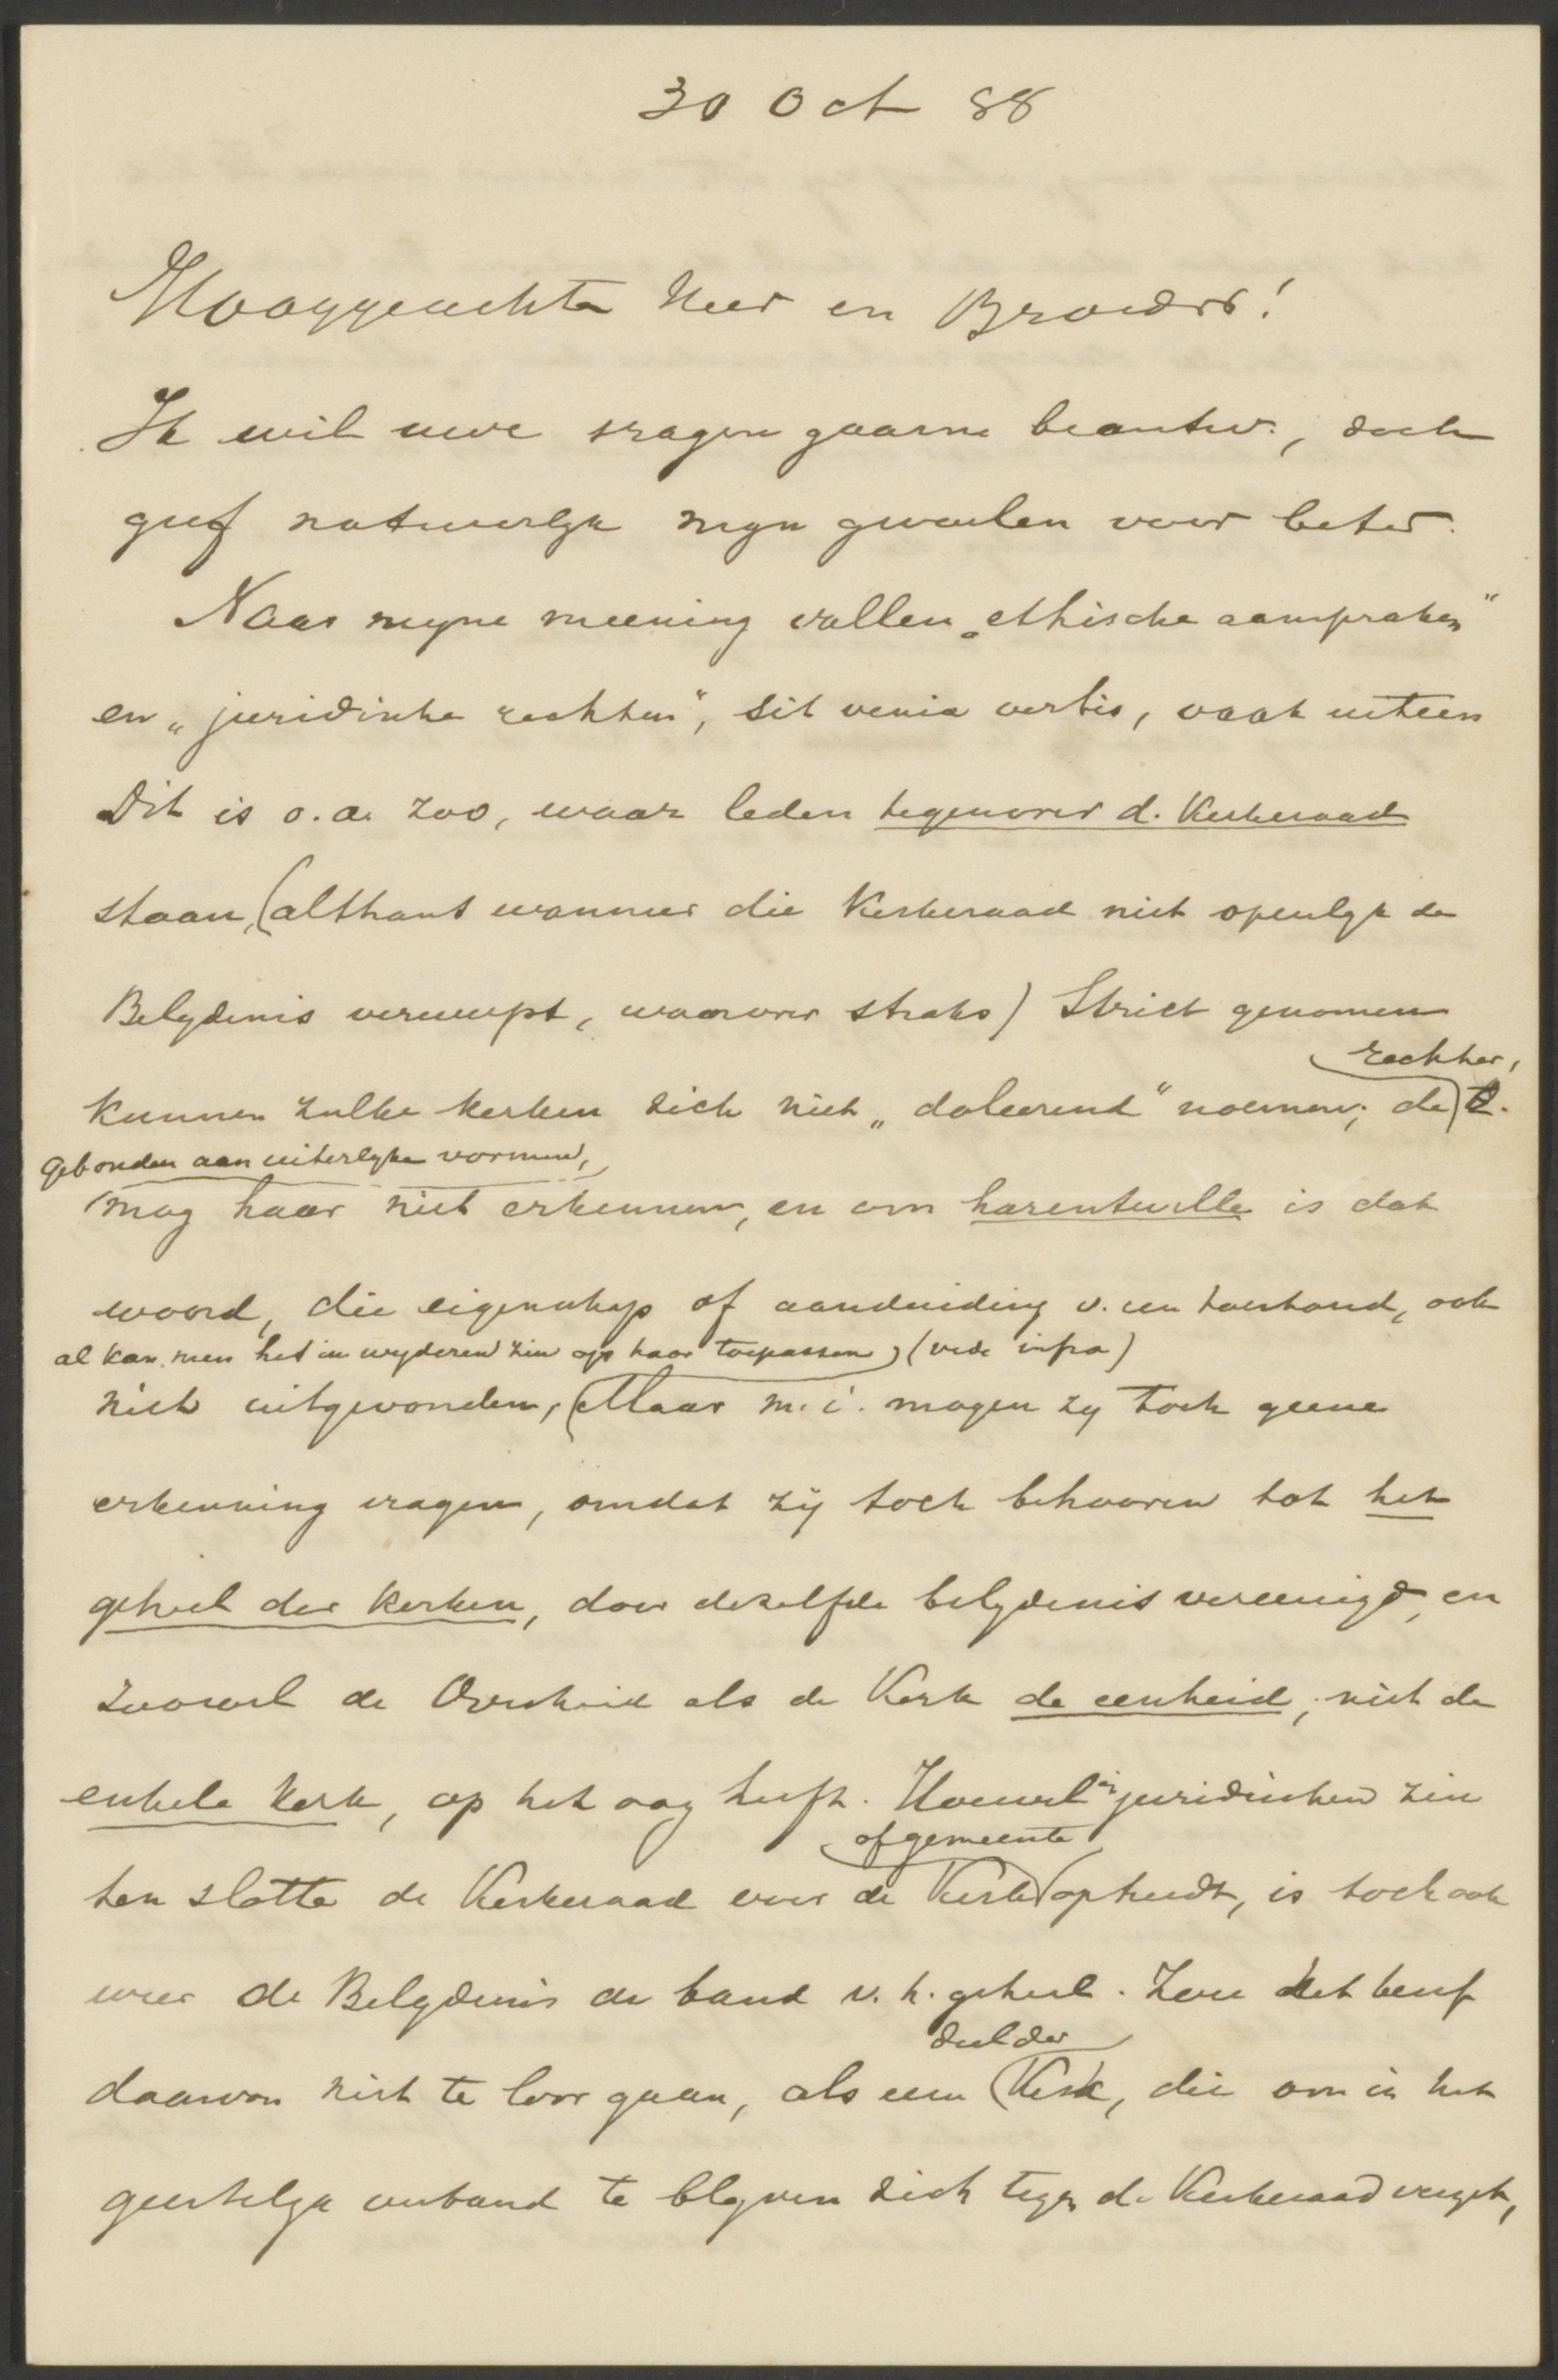 30 Oct 88
Hooggeachte Heer en Broeder!
Ik wil uwe vragen gaarne beantw., doch
geef natuurlijk mijn gevoelen voor beter.
Naar mijne meening vallen „ethische aanspraken"
en „juridische rechten", sit venia verbis, vaak uiteen
Dit is o.a. zoo, waar leden tegenover d. Kerkeraad
staan, (althans wanneer die Kerkeraad niet openlijk de
Belijdenis verwerpt, waarover straks) Strict genomen
rechter,
kunnen zulke kerken zich niet „doleerend" noemen; de
gebonden aan uiterlijke vormen,
mag haar niet erkennen, en om harentwille is dat
woord, die eigenschap of aanduiding v. een toestand, ook
al kan men het in wijderen zin op haar toepassen, (vide infra)
niet uitgevonden, Maar m.i. mogen zij toch geene
erkenning vragen, omdat zij toch behooren tot het
geheel der kerken, door dezelfde belijdenis vereenigd, en
zoowel de Overheid als de Kerk de eenheid, niet de
enkele kerk, op het oog heeft. Hoewel in juridischen zin
of gemeente
ten slotte de Kerkeraad over de Kerk optreedt, is toch ook
weer de Belijdenis de band v. h. geheel. Zou het
deel der
daarvan niet te loor gaan, als een Kerk, die om in het
geestelijk verband te blijven zich tegen de Kerkeraad verzet,